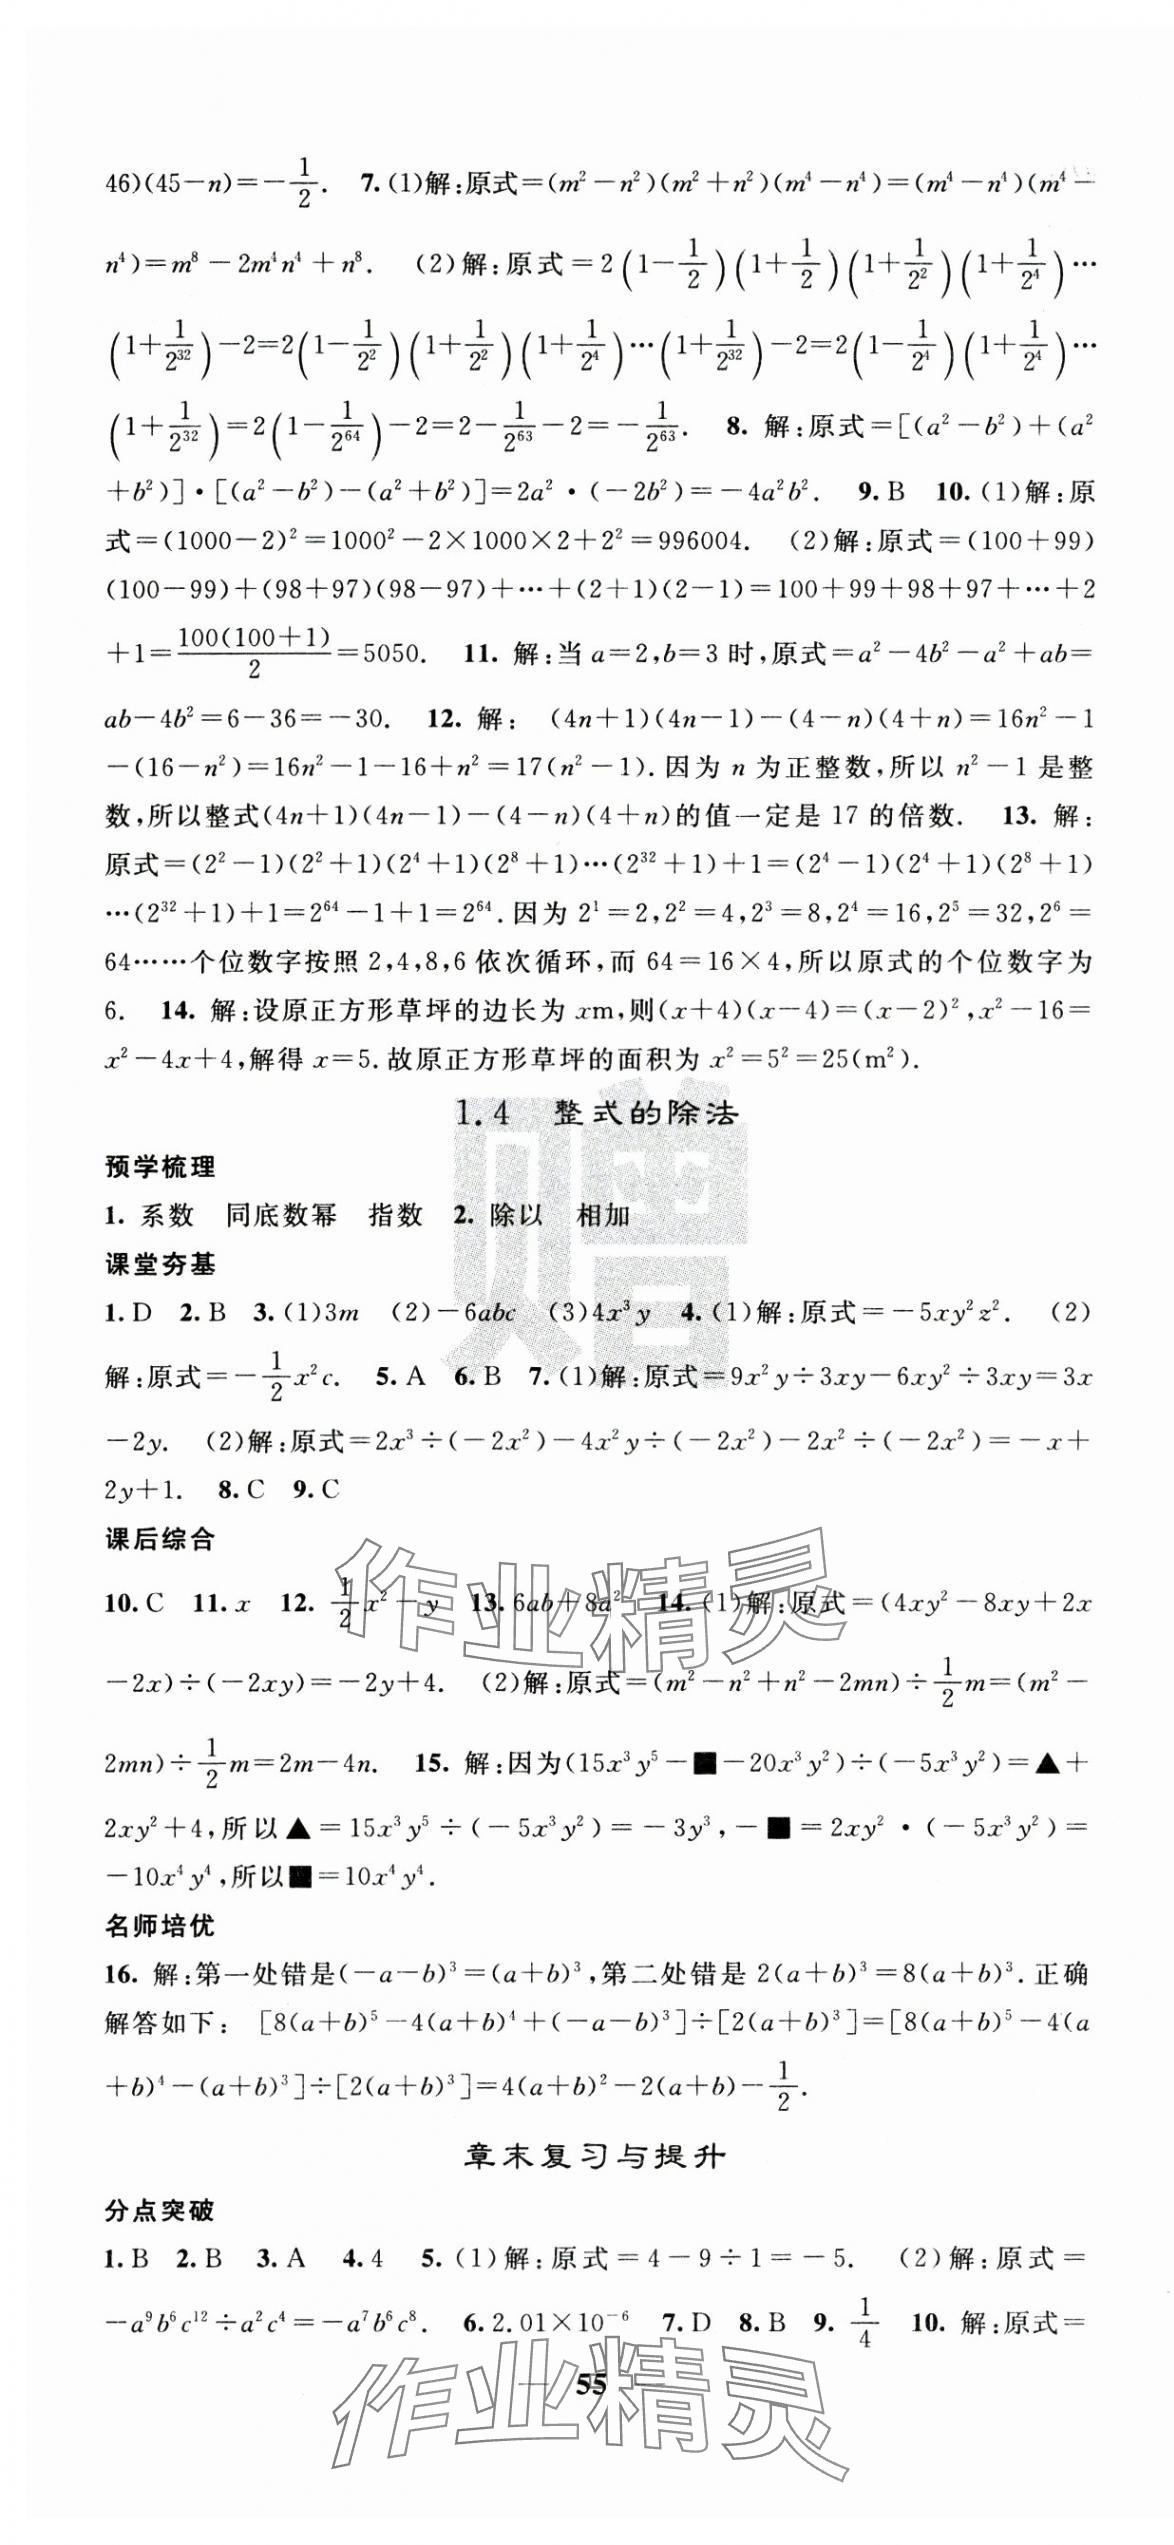 46)(45−n)=−1/2. 7.(1)解:原式=(m²−n²)(m²+n²)(m⁴−n⁴)=(m⁴−n⁴)(m⁴−
n⁴)=m⁸−2m⁴n⁴+n⁸. (2)解:原式=2(1−1/2)(1+1/2)(1+1/2²)(1+1/2⁴)⋯
(1+1/2³²)−2=2(1−1/2²)(1+1/2²)(1+1/2⁴)⋯(1+1/2³²)−2=2(1−1/2⁴)(1+1/2⁴)⋯
(1+1/2³²)=2(1−1/2⁶⁴)−2=2−1/2⁶³−2=−1/2⁶³. 8. 解:原式=[(a²−b²)+(a²
+b²)]·[(a²−b²)−(a²+b²)]=2a²·(−2b²)=−4a²b². 9. B 10. (1)解:原
式=(1000−2)²=1000²−2×1000×2+2²=996004. (2)解:原式=(100+99)
(100−99)+(98+97)(98−97)+⋯+(2+1)(2−1)=100+99+98+97+⋯+2
+1=100(100+1)/2=5050. 11. 解:当a=2,b=3时,原式=a²−4b²−a²+ab=
ab−4b²=6−36=−30. 12. 解: (4n+1)(4n−1)−(4−n)(4+n)=16n²−1
−(16−n²)=16n²−1−16+n²=17(n²−1).因为n为正整数,所以n²−1是整
数,所以整式(4n+1)(4n−1)−(4−n)(4+n)的值一定是17的倍数. 13. 解:
原式=(2²−1)(2²+1)(2⁴+1)(2⁸+1)⋯(2³²+1)+1=(2⁴−1)(2⁴+1)(2⁸+1)
⋯(2³²+1)+1=2⁶⁴−1+1=2⁶⁴.因为2¹=2,2²=4,2³=8,2⁴=16,2⁵=32,2⁶=
64……个位数字按照2,4,8,6依次循环,而64=16×4,所以原式的个位数字为
6. 14. 解:设原正方形草坪的边长为xm,则(x+4)(x−4)=(x−2)²,x²−16=
x²−4x+4,解得x=5.故原正方形草坪的面积为x²=5²=25(m²).
1.4 整式的除法
预学梳理
1. 系数 同底数幂 指数 2. 除以 相加
课堂夯基
1. D 2. B 3. (1)3m (2)−6abc (3)4x³y 4. (1)解:原式=−5xy²z². (2)
解:原式=−1/2x²c. 5. A 6. B 7. (1)解:原式=9x²y÷3xy−6xy²÷3xy=3x
−2y. (2)解:原式=2x³÷(−2x²)−4x²y÷(−2x²)−2x²÷(−2x²)=−x+
2y+1. 8. C 9. C
课后综合
10. C 11. x 12. 1/2x²−y 13. 6ab+8a² 14. (1)解:原式=(4xy²−8xy+2x
−2x)÷(−2xy)=−2y+4. (2)解:原式=(m²−n²+n²−2mn)÷1/2m=(m²−
2mn)÷1/2m=2m−4n. 15. 解:因为(15x³y⁵−■−20x³y²)÷(−5x³y²)=▲+
2xy²+4,所以▲=15x³y⁵÷(−5x³y²)=−3y³,−■=2xy²·(−5x³y²)=
−10x⁴y⁴,所以■=10x⁴y⁴.
名师培优
16. 解:第一处错是(−a−b)³=(a+b)³,第二处错是2(a+b)³=8(a+b)³.正确
解答如下: [8(a+b)⁵−4(a+b)⁴+(−a−b)³]÷[2(a+b)³]=[8(a+b)⁵−4(a
+b)⁴−(a+b)³]÷[2(a+b)³]=4(a+b)²−2(a+b)−1/2.
章末复习与提升
分点突破
1. B 2. B 3. A 4. 4 5. (1)解:原式=4−9÷1=−5. (2)解:原式=
−a⁹b⁶c¹²÷a²c⁴=−a⁷b⁶c⁸. 6. 2.01×10⁻⁶ 7. D 8. B 9. 1/4 10. 解:原式=
— 55 —
赠
作业精灵
作业精灵